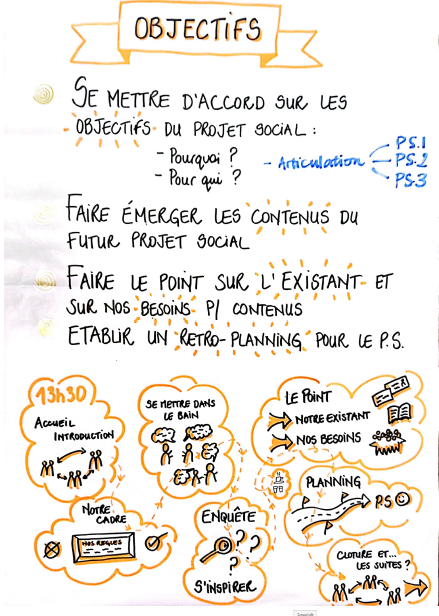 OBJECTIFS
SE METTRE D'ACCORD SUR LES
OBJECTIFS DU PROJET SOCIAL :
- Pourquoi ?
- Pour qui ?
- Articulation
PS.1
PS.2
PS.3
FAIRE ÉMERGER LES CONTENUS DU
FUTUR PROJET SOCIAL
FAIRE LE POINT SUR L'EXISTANT ET
SUR NOS BESOINS P/ CONTENUS
ETABLIR UN RETRO-PLANNING POUR LE P.S.
13h30
ACCUEIL
INTRODUCTION
SE METTRE DANS
LE BAIN
LE POINT
NOTRE EXISTANT
NOS BESOINS
NOTRE
CADRE
NOS REGLES
ENQUÊTE
? ? ?
S'INSPIRER
PLANNING
P.S
CLOTURE ET...
LES SUITES ?